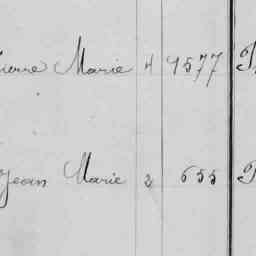 Pierre Marie 4 9577 P
Jean Marie 2 655 P